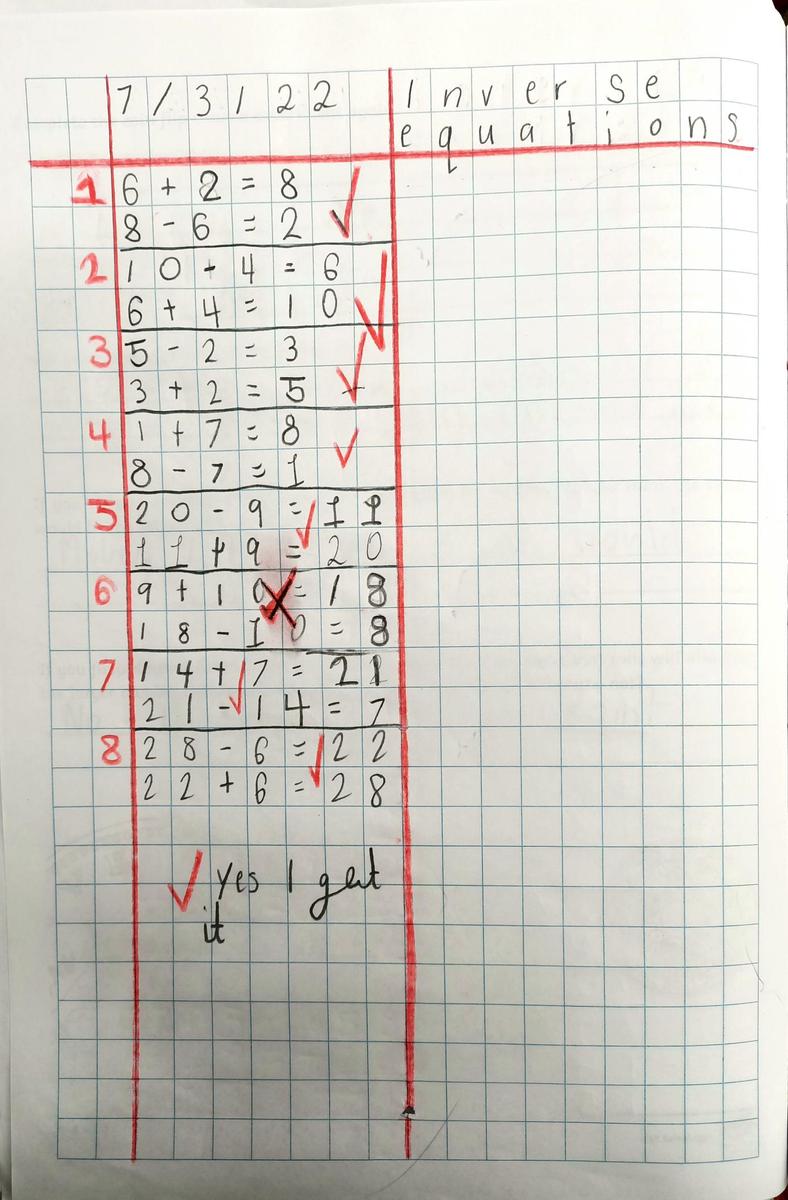 7/3/22 Inverse
equations
1 6 + 2 = 8
8 - 6 = 2
2 10 - 4 = 6
6 + 4 = 10
3 5 - 2 = 3
3 + 2 = 5
4 1 + 7 = 8
8 - 7 = 1
5 20 - 9 = 11
11 + 9 = 20
6 9 + 10 = 18
18 - 10 = 8
7 14 + 7 = 21
21 - 14 = 7
8 28 - 6 = 22
22 + 6 = 28
yes I get
it